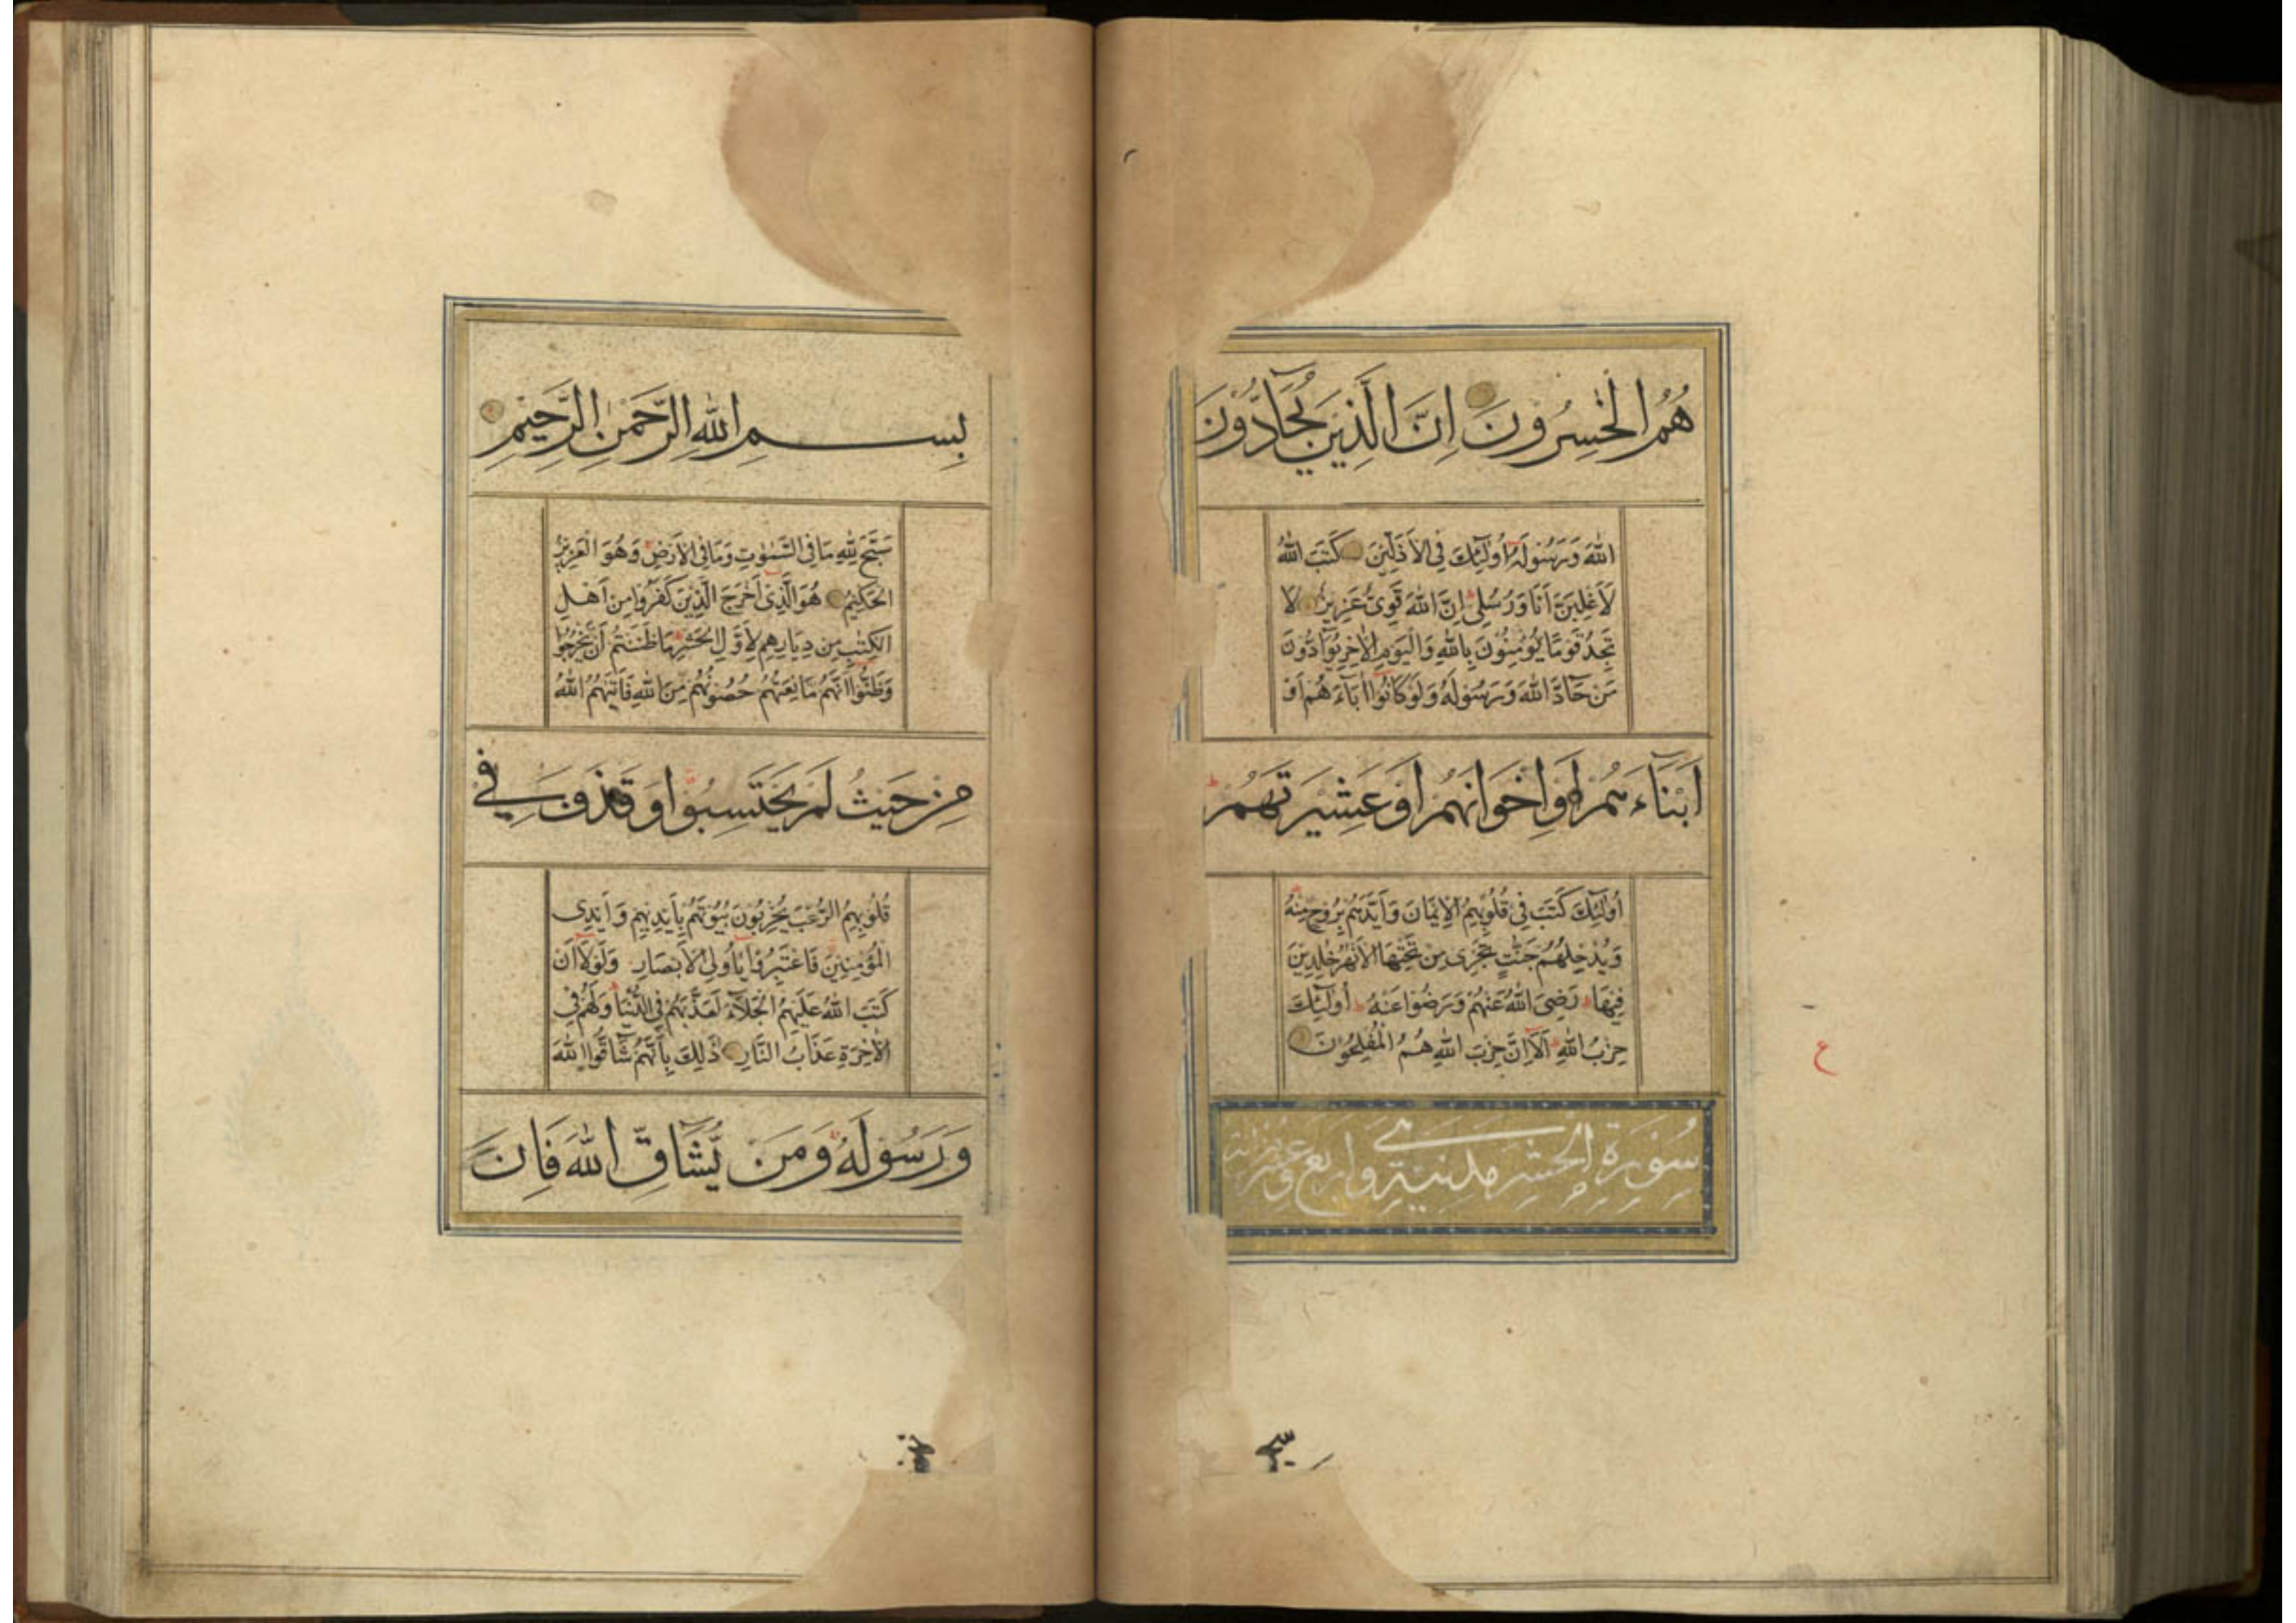 هُمُ الْخٰسِرُونَ اِنَّ الَّذِينَ يُحَآدُّونَ
اللّٰهَ وَرَسُولَهُ اُولٰٓئِكَ فِى الْاَذَلِّينَ كَتَبَ اللّٰهُ
لَاَغْلِبَنَّ اَنَا وَرُسُلِى اِنَّ اللّٰهَ قَوِىٌّ عَزِيزٌ لَا
تَجِدُ قَوْمًا يُؤْمِنُونَ بِاللّٰهِ وَالْيَوْمِ الْاٰخِرِ يُوَآدُّونَ
مَنْ حَآدَّ اللّٰهَ وَرَسُولَهُ وَلَوْ كَانُوا اٰبَآءَهُمْ اَوْ
اَبْنَآءَهُمْ اَوْ اِخْوَانَهُمْ اَوْ عَشِيرَتَهُمْ
اُولٰٓئِكَ كَتَبَ فِى قُلُوبِهِمُ الْاِيمَانَ وَاَيَّدَهُمْ بِرُوحٍ مِنْهُ
وَيُدْخِلُهُمْ جَنّٰتٍ تَجْرِى مِنْ تَحْتِهَا الْاَنْهٰرُ خٰلِدِينَ
فِيهَا رَضِىَ اللّٰهُ عَنْهُمْ وَرَضُوا عَنْهُ اُولٰٓئِكَ
حِزْبُ اللّٰهِ اَلَآ اِنَّ حِزْبَ اللّٰهِ هُمُ الْمُفْلِحُونَ
سُورَةِ الْحَشْرِ مدنية وهى اربع وعشرون اية
ع
بِسْمِ اللّٰهِ الرَّحْمٰنِ الرَّحِيمِ
سَبَّحَ لِلّٰهِ مَا فِى السَّمٰوٰتِ وَمَا فِى الْاَرْضِ وَهُوَ الْعَزِيزُ
الْحَكِيمُ هُوَ الَّذِى اَخْرَجَ الَّذِينَ كَفَرُوا مِنْ اَهْلِ
الْكِتٰبِ مِنْ دِيَارِهِمْ لِاَوَّلِ الْحَشْرِ مَا ظَنَنْتُمْ اَنْ يَخْرُجُوا
وَظَنُّوا اَنَّهُمْ مَانِعَتُهُمْ حُصُونُهُمْ مِنَ اللّٰهِ فَاَتٰىهُمُ اللّٰهُ
مِنْ حَيْثُ لَمْ يَحْتَسِبُوا وَقَذَفَ فِى
قُلُوبِهِمُ الرُّعْبَ يُخْرِبُونَ بُيُوتَهُمْ بِاَيْدِيهِمْ وَاَيْدِى
الْمُؤْمِنِينَ فَاعْتَبِرُوا يَا اُولِى الْاَبْصَارِ وَلَوْلَا اَنْ
كَتَبَ اللّٰهُ عَلَيْهِمُ الْجَلَآءَ لَعَذَّبَهُمْ فِى الدُّنْيَا وَلَهُمْ فِى
الْاٰخِرَةِ عَذَابُ النَّارِ ذٰلِكَ بِاَنَّهُمْ شَآقُّوا اللّٰهَ
وَرَسُولَهُ وَمَنْ يُشَاقِّ اللّٰهَ فَاِنَّ